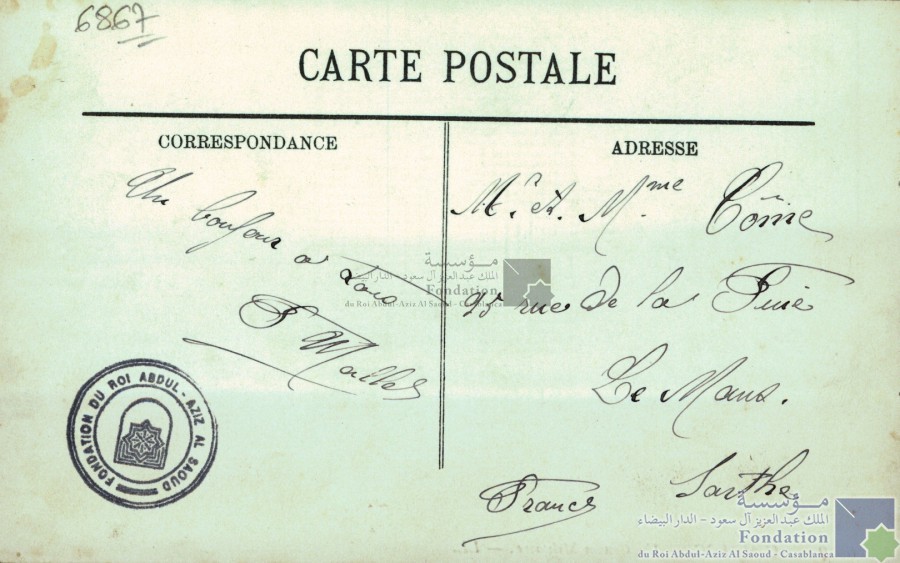 6867
CARTE POSTALE
CORRESPONDANCE
Un bonjour
a tous
ADRESSE
Mr. et. Mme Côme
rue de la
Le Mans.
Sarthe
France
FONDATION DU ROI ABDUL-AZIZ AL SAOUD
مؤسسة
الملك عبد العزيز آل سعود - الدار البيضاء
Fondation
du Roi Abdul-Aziz Al Saoud - Casablanca
مؤسسة
الملك عبد العزيز آل سعود - الدار البيضاء
Fondation
du Roi Abdul-Aziz Al Saoud - Casablanca